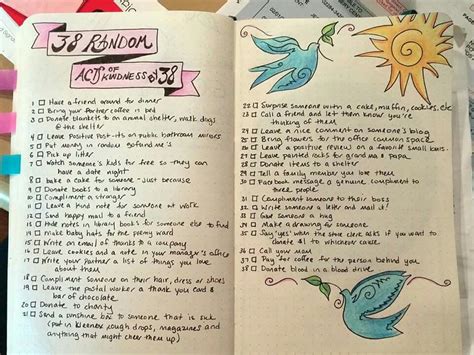 38 RANDOM
ACTS OF KINDNESS @ 38
1 Have a friend around for dinner
2 Bring your partner coffee in bed
3 Donate blankets to an animal shelter, walk dogs
@ the shelter
4 Leave Positive Post-its on public bathroom mirrors
5 Put money in random gofundme's
6 Pick up litter
7 Watch someone's kids for free so they can
have a date night
8 bake a cake for someone - just because
9 Donate books to a library
10 Compliment a stranger
11 Leave a kind note for someone at work
12 Send happy mail to a friend
13 Hide notes in library books for someone else to find
14 make baby hats for the ward
15 Write an email of thanks to a company
16 Leave cookies and a note in your manager's office
17 Write your partner a list of things you love
about them
18 Compliment someone on their hair, dress or shoes
19 Leave the postal worker a thank you card &
bar of chocolate
20 Donate to charity
21 Send a sunshine box to someone that is sick
(put in kleenex, cough drops, magazines and
anything that might cheer them up)
22 Surprise someone with a cake, muffin, cookies, etc
23 Call a friend and let them know you're
thinking of them
24 Leave a nice comment on someone's blog
25 Bring flowers for the office common space
26 Leave a positive review on a favorite small business
27 Leave painted rocks for grandma & papa
28 Donate items to a shelter
29 Tell a family member you love them
30 Facebook message a genuine compliment to
three people
31 Compliment someone to their boss
32 Write someone a letter and mail it!
33 Give someone a hug
34 Make a drawing for someone
35 Say 'yes' when the store clerk asks if you want to
donate $1 to whichever cause
36 Call your mom
37 Pay for coffee for the person behind you
38 Donate blood in a blood drive